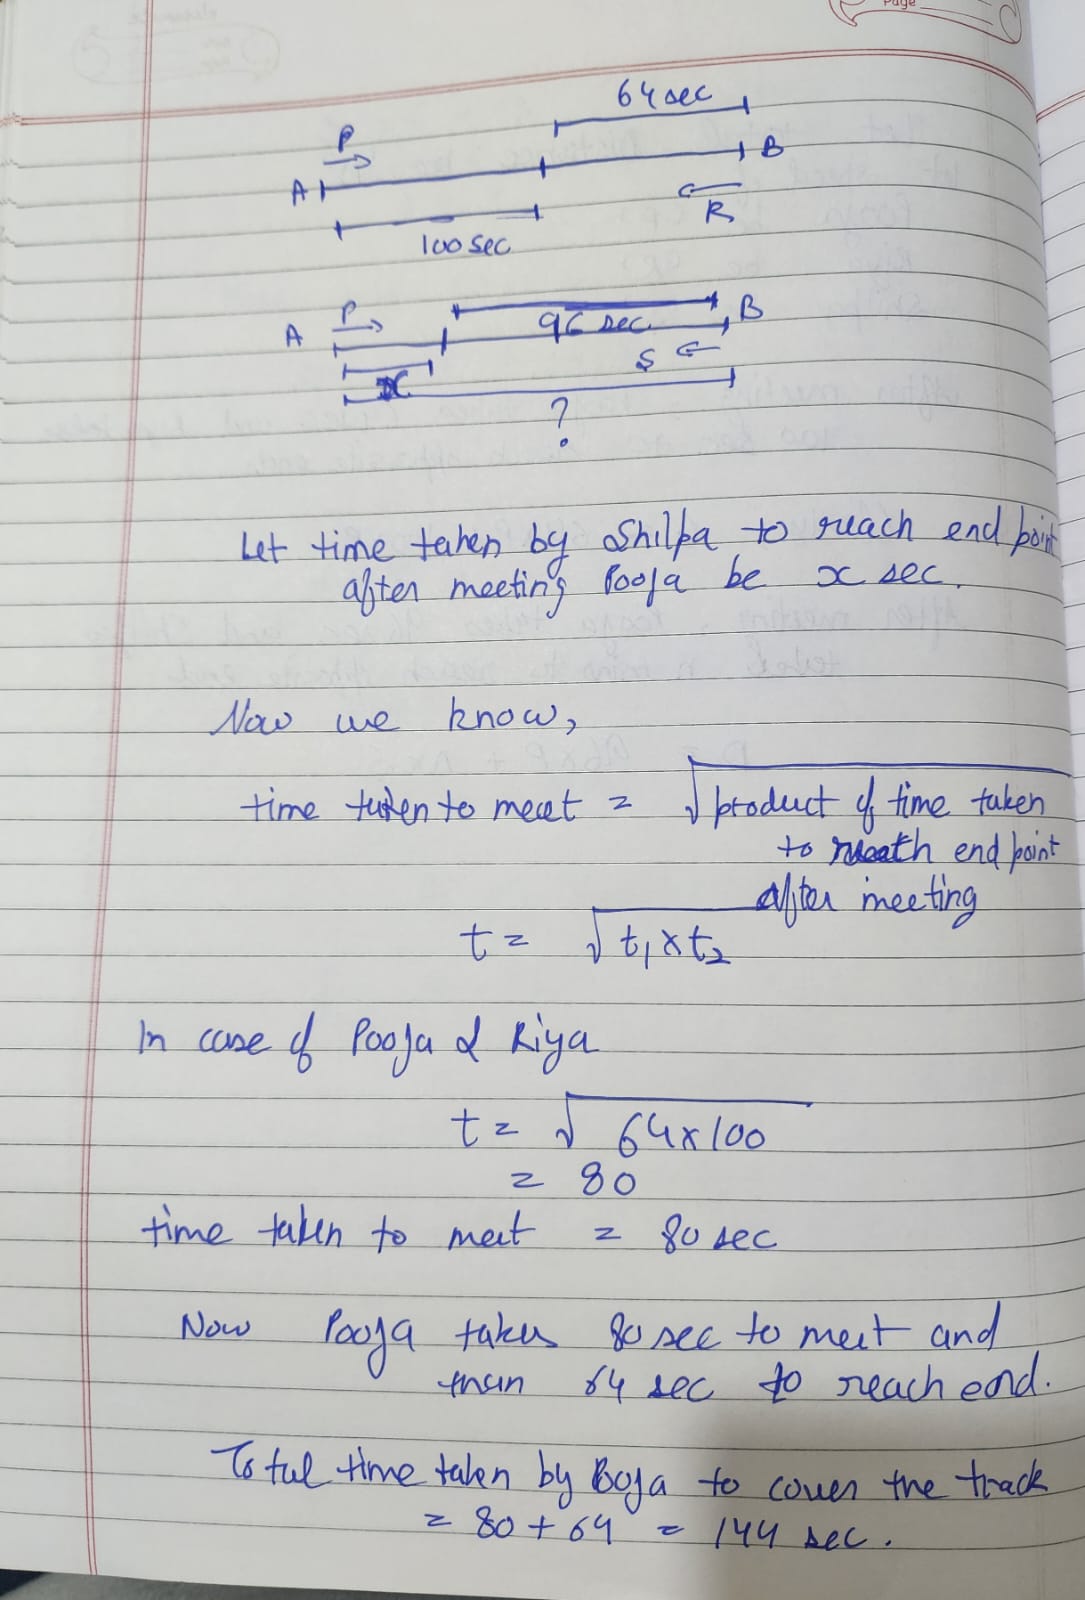 Page
64 sec
P
A
B
R
100 sec
P
A
B
96 sec
S
x
?
Let time taken by Shilpa to reach end point
after meeting Pooja be x sec.
Now we know,
time taken to meet = √product of time taken
to reach end point
after meeting
t = √t₁ × t₂
In case of Pooja & Riya
t = √64 × 100
= 80
time taken to meet = 80 sec
Now Pooja takes 80 sec to meet and
than 64 sec to reach end.
Total time taken by Booja to cover the track
= 80 + 64 = 144 sec.